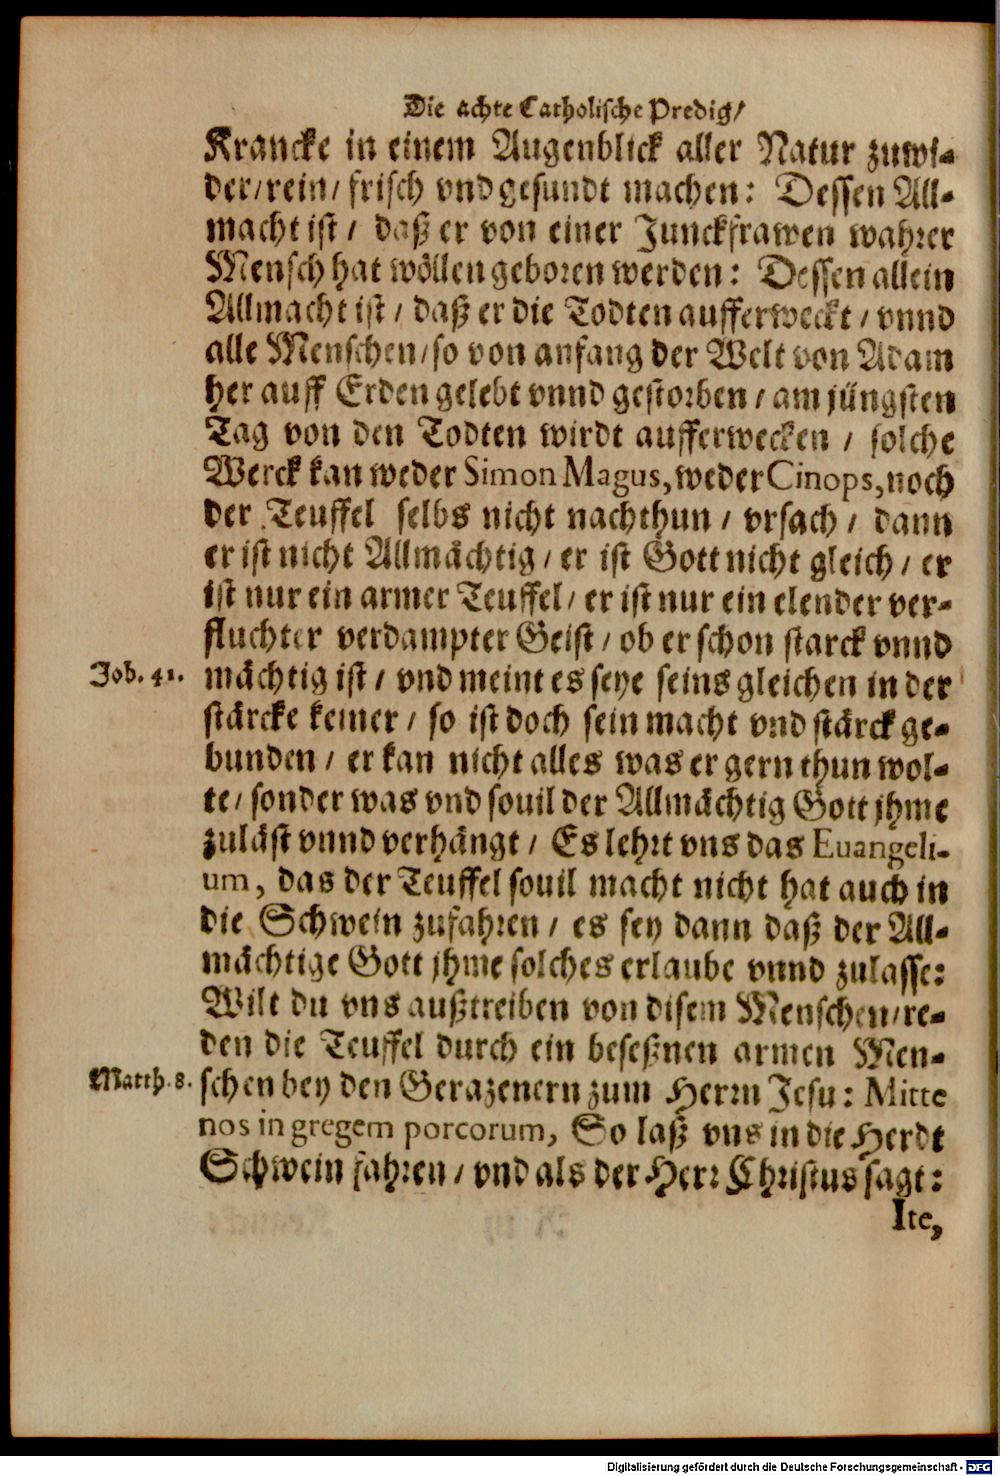 Die achte Catholische Predig/
Krancke in einem Augenblick aller Natur zuwi-
der/rein/ frisch vnd gesundt machen: Dessen All-
macht ist / daß er von einer Junckfrawen wahrer
Mensch hat wöllen geboren werden: Dessen allein
Allmacht ist / daß er die Todten aufferweckt / vnnd
alle Menschen/so von anfang der Welt von Adam
her auff Erden gelebt vnnd gestorben / am jüngsten
Tag von den Todten wirdt aufferwecken / solche
Werck kan weder Simon Magus, weder Cinops, noch
der Teuffel selbs nicht nachthun / vrsach / dann
er ist nicht Allmächtig / er ist Gott nicht gleich / er
ist nur ein armer Teuffel/ er ist nur ein elender ver-
fluchter verdampter Geist / ob er schon starck vnnd
Job. 41. mächtig ist / vnd meint es seye seins gleichen in der
stärcke keiner / so ist doch sein macht vnd stärck ge-
bunden / er kan nicht alles was er gern thun wol-
te/ sonder was vnd souil der Allmächtig Gott jhme
zuläst vnnd verhängt / Es lehrt vns das Euangeli-
um, das der Teuffel souil macht nicht hat auch in
die Schwein zufahren / es sey dann daß der All-
mächtige Gott jhme solches erlaube vnnd zulasse:
Wilt du vns außtreiben von disem Menschen/re-
den die Teuffel durch ein beseßnen armen Men-
Matth. 8. schen bey den Gerazenern zum Herrn Jesu: Mitte
nos in gregem porcorum, So laß vns in die Herdt
Schwein fahren / vnd als der Herr Christus sagt:
Ite,
Digitalisierung gefördert durch die Deutsche Forschungsgemeinschaft - DFG